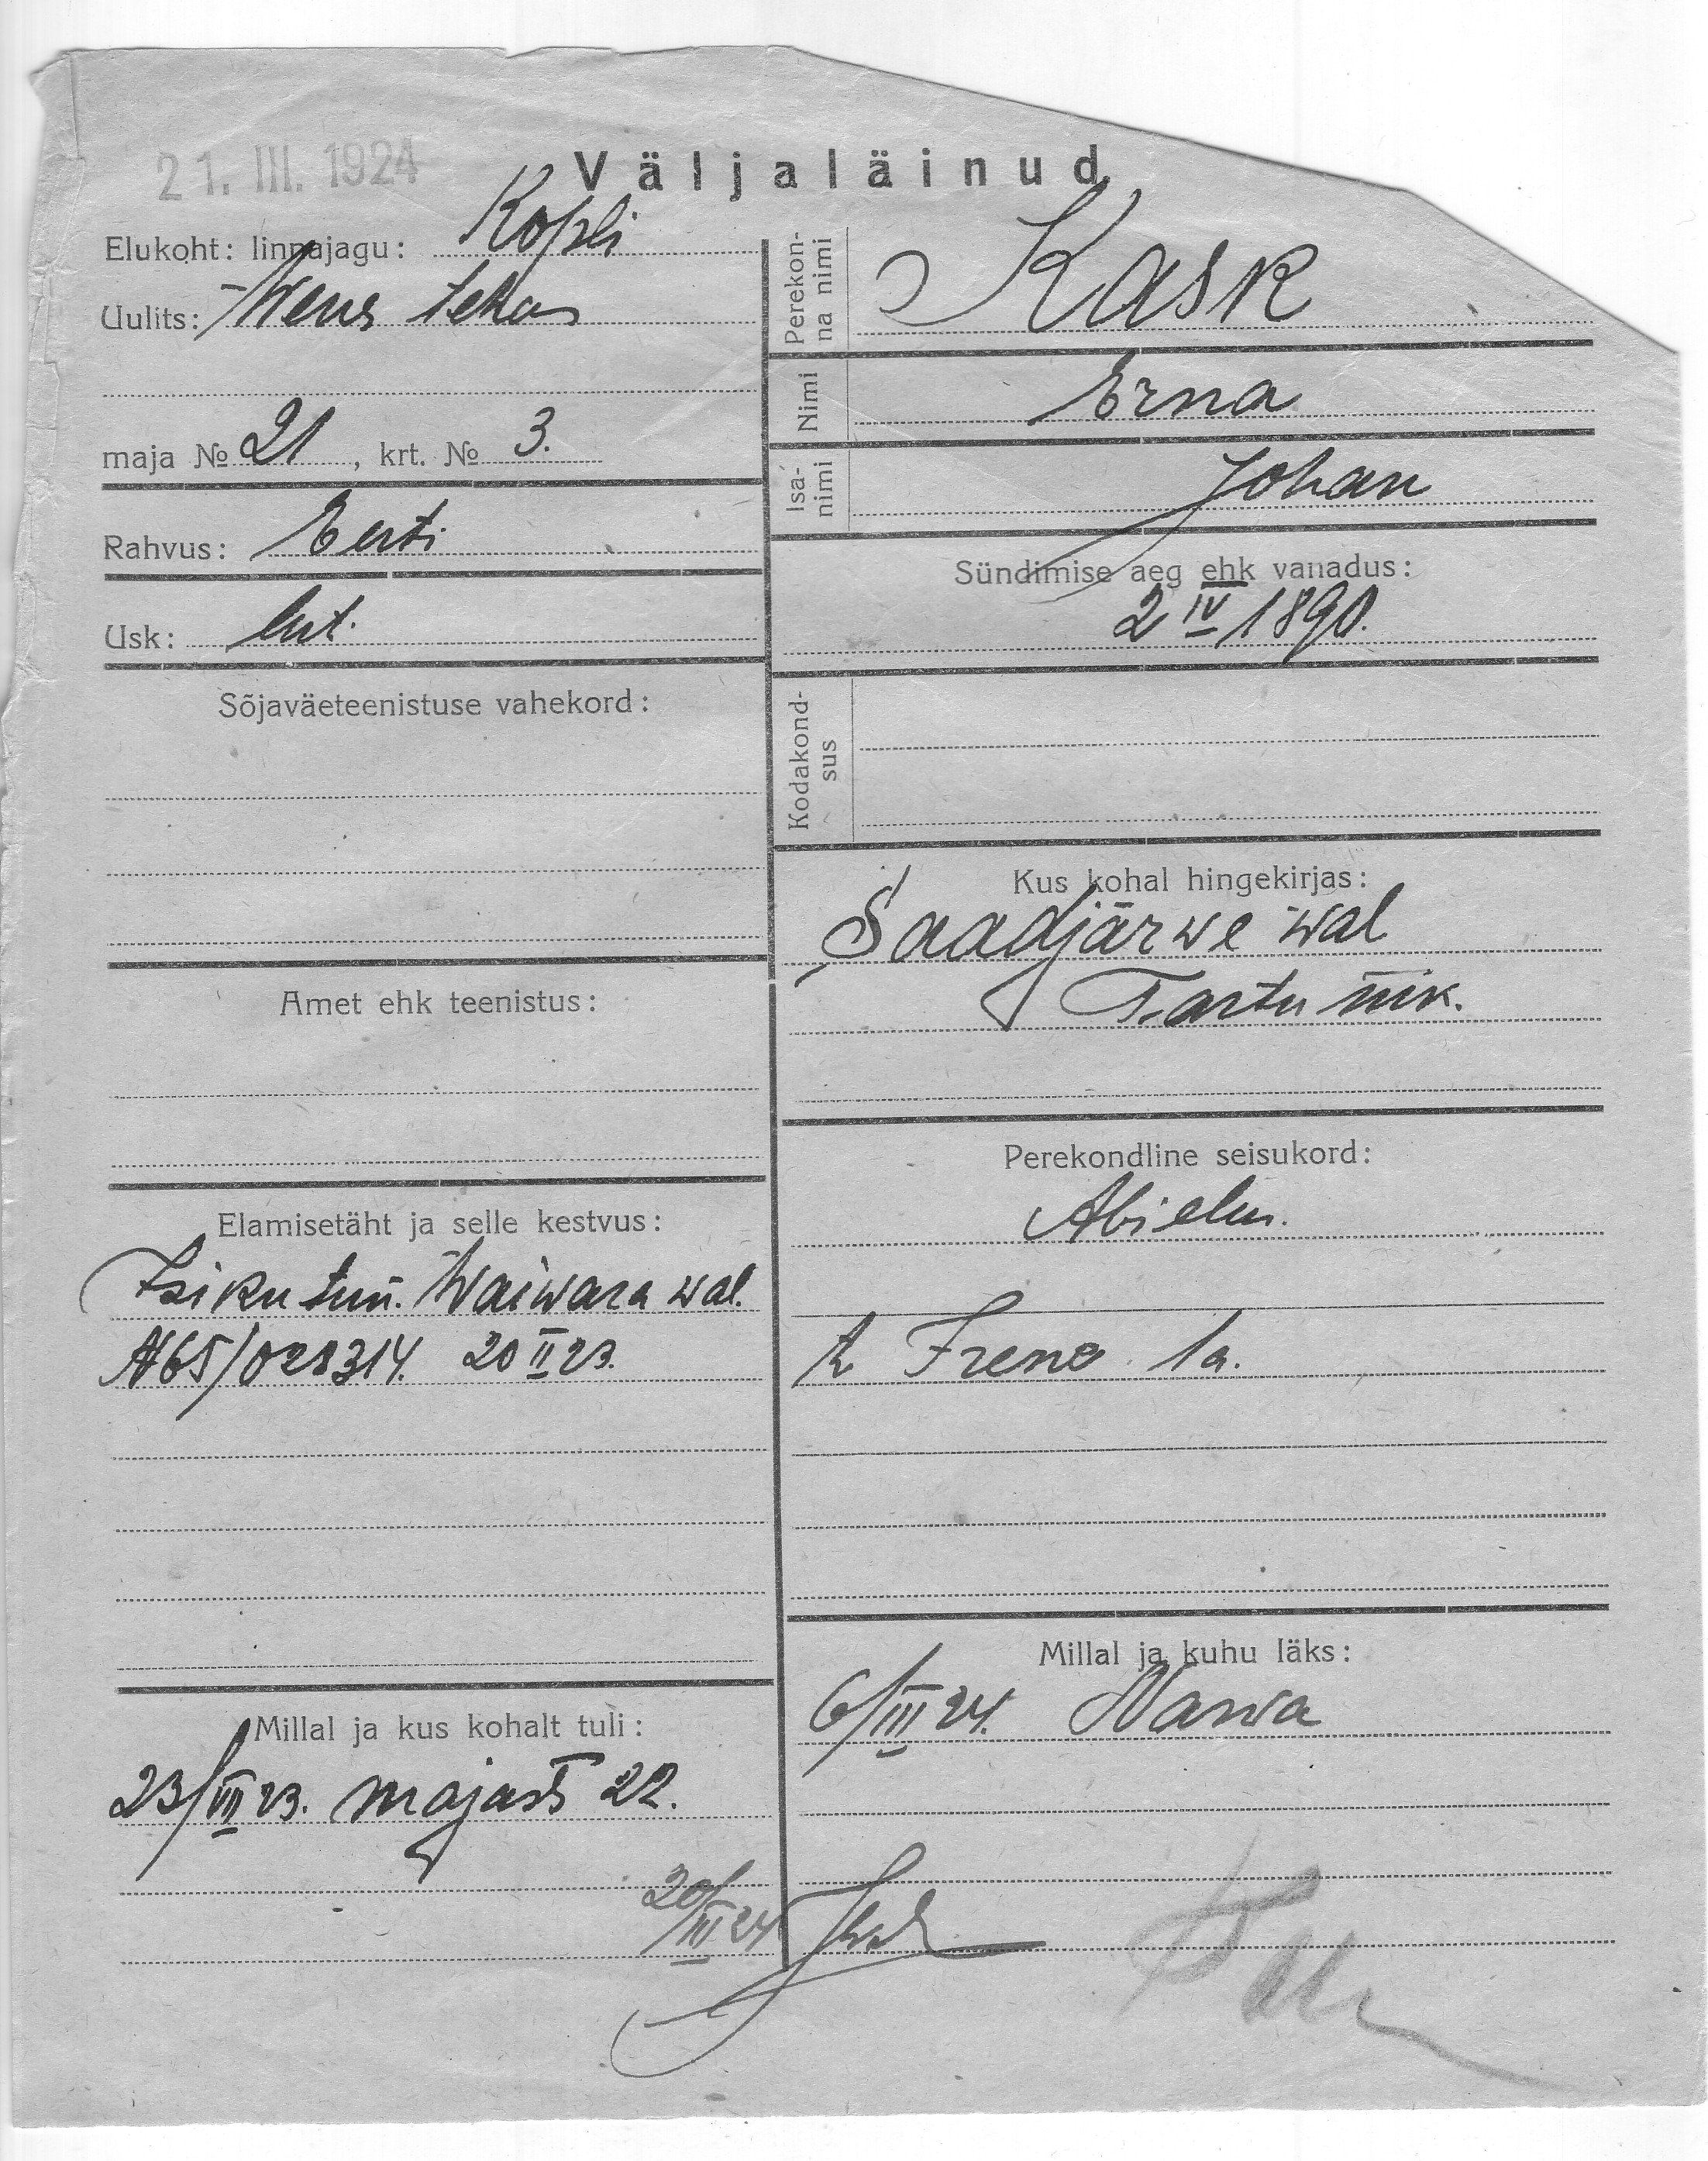 21. III. 1924
Väljaläinud
Elukoht: linnajagu: Kopli
Uulits: Wene tehas
maja № 21, krt. № 3.
Rahvus: Eesti
Usk: lut.
Sõjaväeteenistuse vahekord:
Amet ehk teenistus:
Elamisetäht ja selle kestvus:
Isiku tun. Waiwara wal.
№65/028314. 20 II 23.
Millal ja kus kohalt tuli:
23/VII 23. majast 22.
20/III 24
Perekonna nimi Kask
Nimi Erna
Isa-nimi Johan
Sündimise aeg ehk vanadus:
2 IV 1890.
Kodakond-
sus
Kus kohal hingekirjas:
Saadjärwe wal
Tartu mk.
Perekondline seisukord:
Abielus.
t. Irene 1 a.
Millal ja kuhu läks:
6/III 24. Narwa